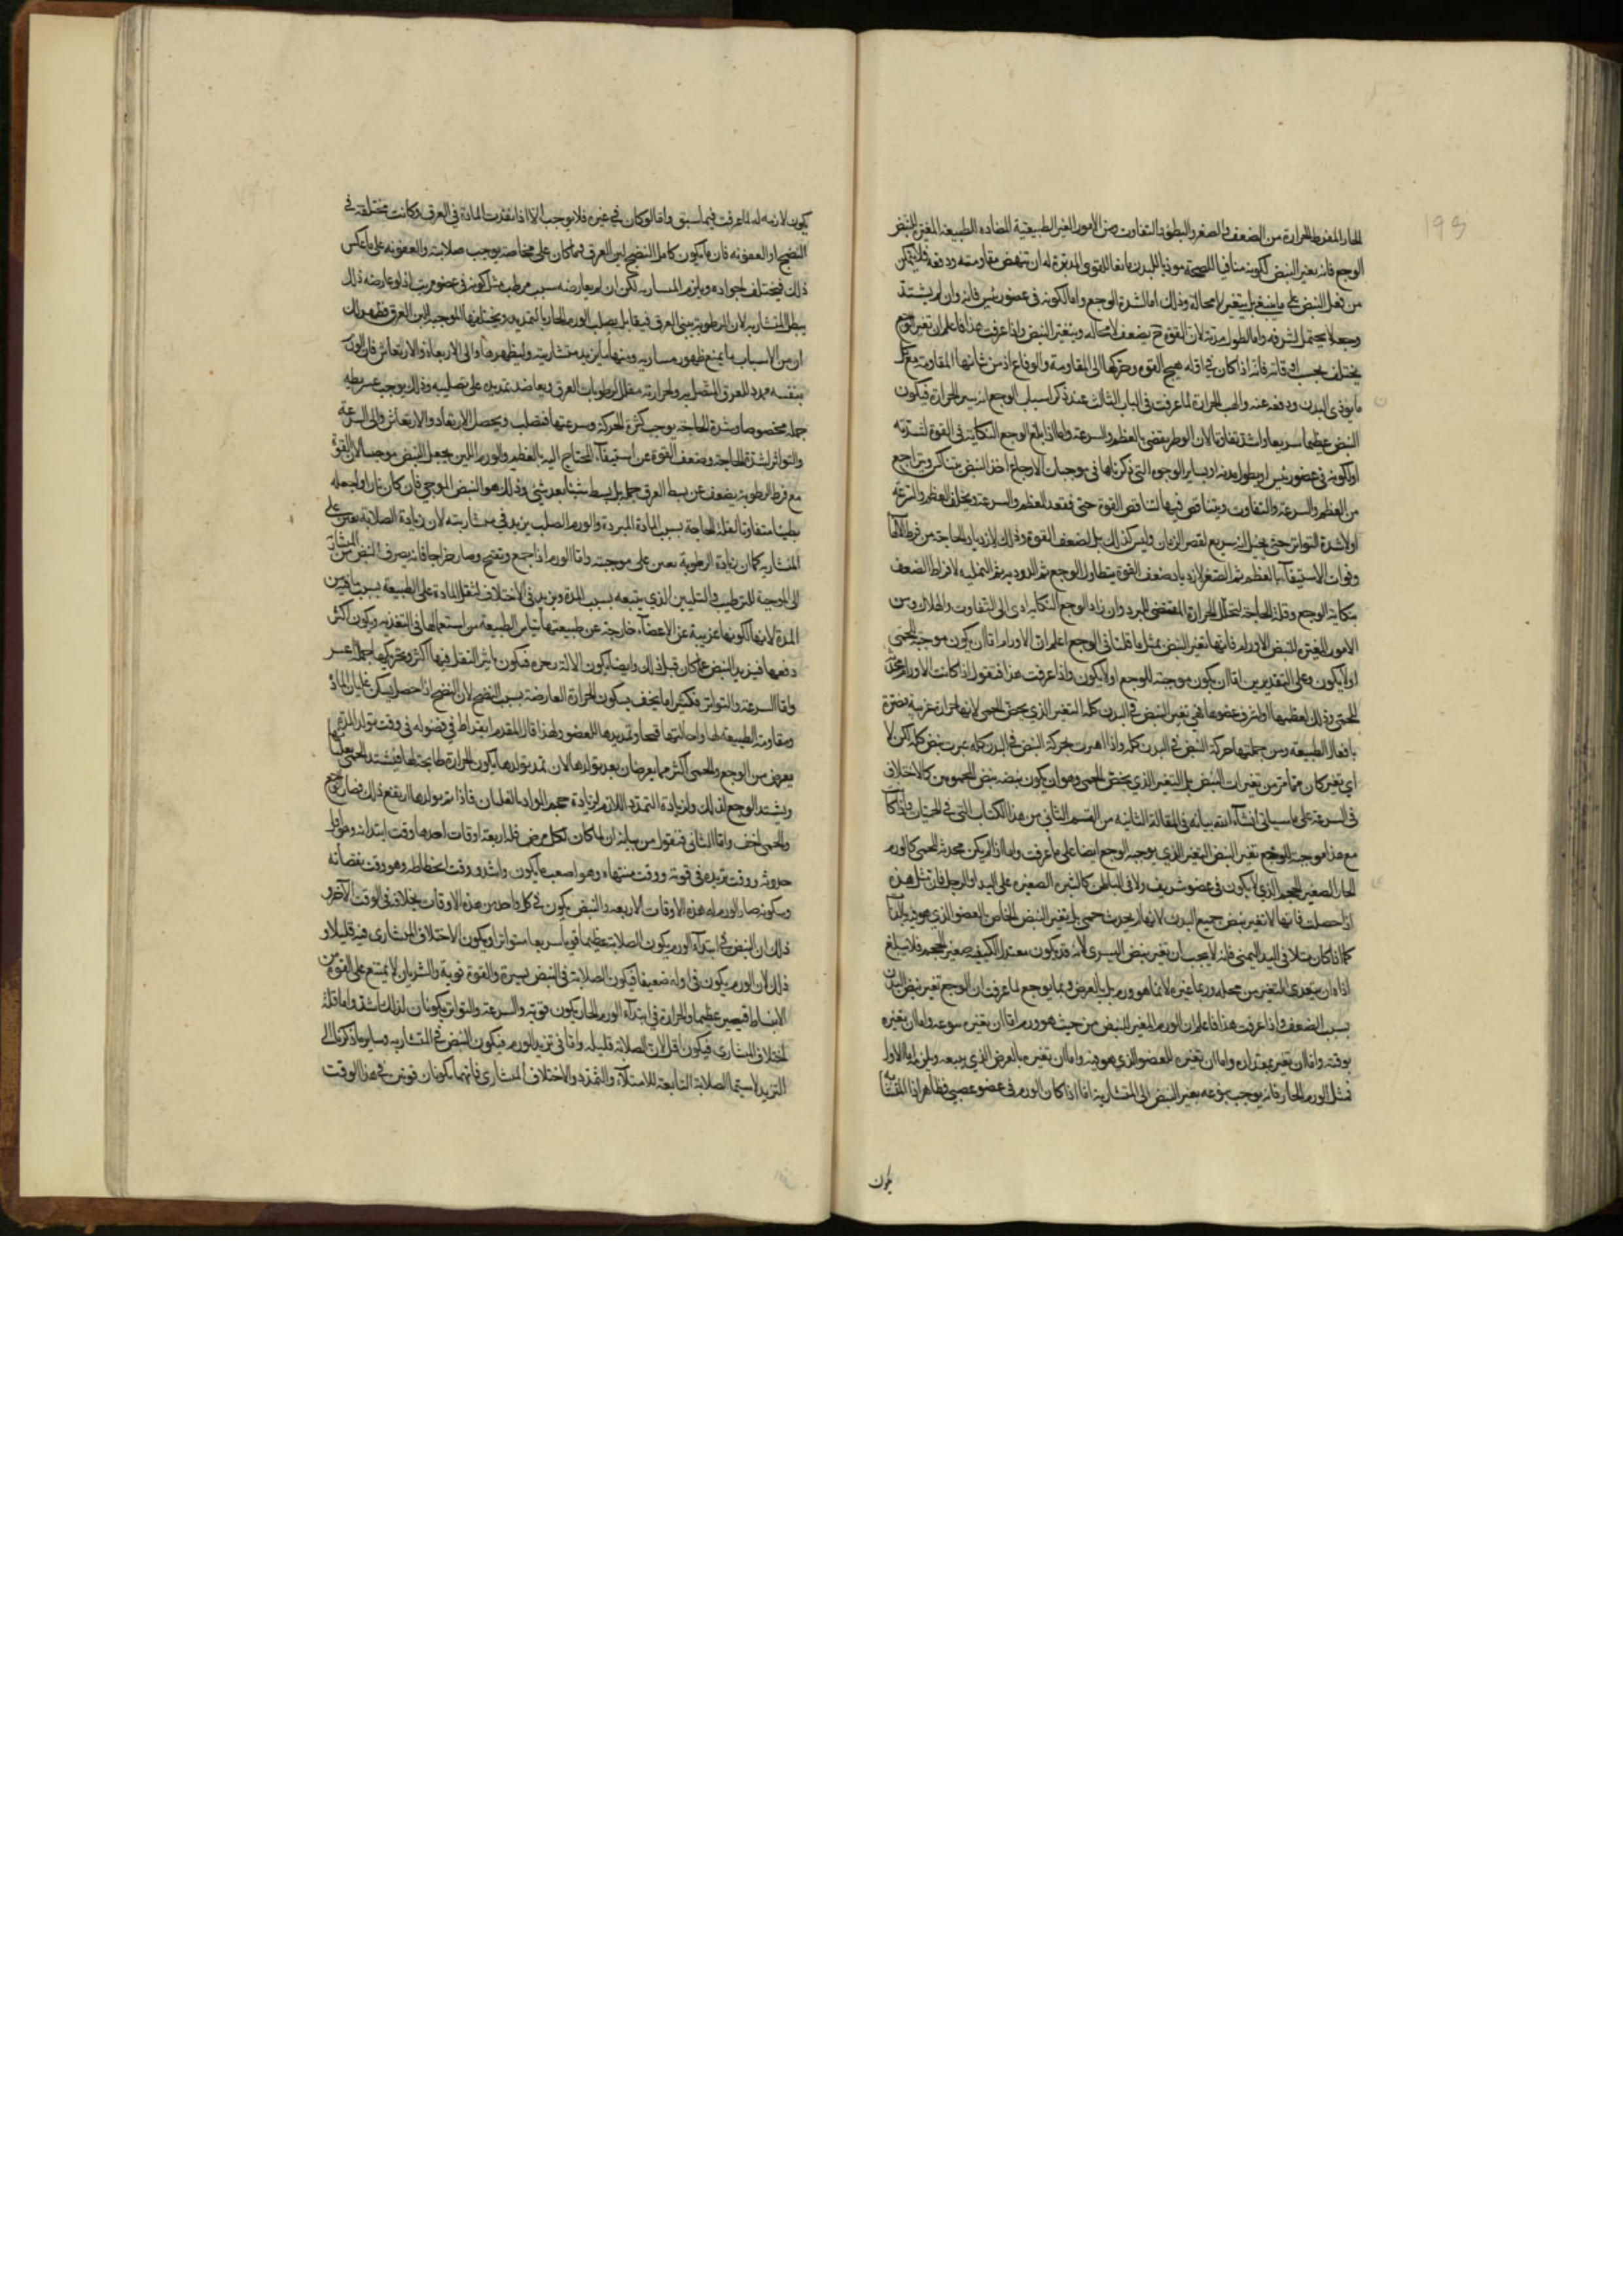 الحار المفرط الحرارة من الضعف والصغر والبطؤ والتفاوت ومن الامور الغير الطبيعية المضاده الطبيعة المغير للنبض
الوجع فانه يغير النبض لكونه منافيا للصحة موذيا للبدن مانعا للقوى المدبرة له ان تنهض مقاومته ودفعه فلا يتمكن
من فعل النبض على ما ينبغي بل يتغير لا محالة وذلك اما لشدة الوجع واما لكونه في عضو رئيس فانه وان لم يشتد
وجعه لا يحتمل لشرفه واما لطول مدته لان القوة ح يضعف لا محاله ويتغير النبض واذا عرفت هذا فاعلم ان تغير الوجع
يختلف بحسب اوقاته فانه اذا كان في اوله هيج القوه وحركها الى المقاومة والدفاع اذ من شانها المقاومة مع كل
ما يوذي البدن ودفعه عنه والهب الحرارة لما عرفت في الباب الثالث عند ذكر اسباب الوجع انه يثير الحرارة فيكون
النبض عظيما سريعا واشد تفاوتا لان الوطر يقضي بالعظم والسرعة واما اذا بلغ الوجع النكاية في القوة لشدته
او لكونه في عضو رئيس او بطول مدته او بساير الوجوه التي ذكرناها في موجبات الاوجاع اخذ النبض يتناكر ويتراجع
من العظم والسرعة والتفاوت ويتناقص فيها لتناقص القوة حتى فقد العظم والسرعة ويخلف العظم والسرعة
اولا شدة التواتر حتى يخيل انه سريع لقصر الزمان وليس كذلك بل لضعف القوة وذلك لازدياد الحاجة من فرط الالم
وفوات الاستيفاء بالعظم ثم الصغر لازدياد ضعف القوة بتطاول الوجع ثم الدوديه ثم النمليه لافراط الضعف
بنكاية الوجع وقلة الحاجة لتحلل الحرارة المقتضى للبرد وان زاد الوجع النكايه ادى الى التفاوت والهلاك ومن
الامور المغيره للنبض الاورام فانها تغير النبض بمثل ما قلنا في الوجع اعلم ان الاورام اما ان يكون موجبة للحمى
او لا يكون وعلى التقديرين اما ان يكون موجبة للوجع او لا يكون واذا عرفت هذا فنقول اذا كانت الاورام محدثة
للحمى وذلك لعظمها او لشرف عضوها فهي تغير النبض في البدن كله التغير الذي يخص الحمى لانها حرارة غريبة مضرة
بافعال الطبيعه ومن جملتها حركة النبض في البدن كله واذا اضرت بحركة النبض في البدن كله غيرت نبض كله لكن لا
اي تغير كان مما مر من تغيرات النبض بل التغير الذي يخص الحمى وهو ان يكون نبضه نبض المحمومين كالاختلاف
في السرعة على ما سياتي انشاء الله بيانه في المقالة الثانيه من القسم الثاني من هذا الكتاب التي في الحميات واذا كان
مع هذا موجبا للوجع تغير النبض التغير الذي يوجبه الوجع ايضا على ما عرفت واما اذا لم يكن محدثة للحمى كالورم
الحار الصغير الحجم الذي لا يكون في عضو شريف ولا في الباطن كالبثره الصغيره على اليد او الرجل فان مثل هذه
اذا حصلت فانها لا تغير نبض جميع البدن لانها لم يحدث حمى بل تغير النبض الخاص العضو الذي هو فيه بالذات
كما اذا كان مثلا في اليد اليمنى فانه لا يجب ان تغير نبض اليسرى لانه قد يكون معتدل الكيفيه صغير الحجم فلا يبلغ
اذاه ان يتعدى التغير من محله وربما غيره لا بما هو ورم بل بالعرض وبما يوجع لما عرفت ان الوجع تغير نبض البدن
بسبب الضعف واذا عرفت هذا فاعلم ان الورم المغير للنبض من حيث هو ورم اما ان يغيره بنوعه واما ان يغيره
بوقته واما ان يغيره بمقداره واما ان يغيره للعضو الذي هو فيه واما ان يغيره بالعرض الذي يتبعه ويلزمه اما الاول
فمثل الورم الحار فانه يوجب بنوعه بغير النبض الى المنشارية اما اذا كان الورم في عضو عصبي فظاهر اذا المنشاريه
يكون
يكون لازمه له لما عرفت فيما سبق واما لو كان في غيره فلا يوجب الا اذا نفذت المادة في العرق وكانت مختلفة في
النضج او العفونه فان ما يكون كامل النضج لين العرق وما كان على فجاجته يوجب صلابته والعفونه على ما عكس
ذلك فيختلف اجزاءه ويلزم المنشاريه لكن ان لم يعارضه سبب مرطب مثل كونه في عضو مرطب اذ لو عارضه ذلك
يبطل المنشاريه لان الرطوبة يبني العرق فيقابل بصلب الورم الحار بالتمديد ويختلفها الموجبه للين العرق فظهر ان
ان من الاسباب ما يمنع ظهور منشاريه ومنها ما يزيد منشاريته وليظهرها والى الارتعاد والارتعاش فان الورم
بنفسه ممدد للعرق المتصل به ولحرارته مقلل لرطوبات العرق ويعاضد تمديده على تصليبه وذلك يوجب عسر بطه
جمله مخصوصا وشدة الحاجة يوجب كثرة الحركة وسرعتها فتصلب ويحصل الارتعاد والارتعاش والى السرعة
والتواتر لشدة الحاجة وضعف القوة عن استيفاء المحتاج اليه بالعظم والورم اللين يجعل النبض موجيا لان القوة
مع فرط الرطوبة يضعف عن بسط العرق جملة بل يبسط شيئا بعد شيء وذلك هو النبض الموجي فان كان باردا جعله
بطيئا متفاوتا لقلة الحاجة بسبب المادة المبردة والورم الصلب يزيد في منشاريته لان زيادة الصلابة تعين على
المنشاريه كما ان زيادة الرطوبة تعين على موجيته واما الورم اذا جمع وتفتح وصار خراجا فانه يصرف النبض من المنشارية
الى الموجية للترطيب والتليين الذي يتبعه بسبب المدة ويزيد في الاختلاف لثقل المادة على الطبيعة بسبب ما هي من
المدة لانها لكونها غريبة عن الاعضاء خارجة عن طبيعتها تياس الطبيعة من استعمالها في التغذيه ويكون اكثر
دفعها فيزيد النبض عما كان قبل ذلك وايضا يكون الالة رخوه فيكون تاثير الثقل فيها اكثر وتحريكها جملة اعسر
واما السرعة والتواتر فكثيرا ما يخف بسكون الحرارة العارضة بسبب النضج لان النضج اذا حصل يسكن غليان المادة
ومقاومة الطبيعة لها واحالتها قيحا وتمديدها للعضو ولهذا قال المقدم ابقراط في فصوله في وقت تولد المدة
يعرض من الوجع والحمى اكثر مما يعرضان بعد تولدها لان عند تولدها يكون الحرارة طابخة لها فيشتد الحمى بغليانها
ويشتد الوجع لذلك ولزيادة التمدد اللازم لزيادة حجم المواد بالغليان فاذا تم تولدها ارتفع ذلك فصار الوجع
والحمى اخف واما الثاني فنقول من بيانه ان لما كان لكل مرض فله اربعة اوقات احدها وقت ابتدائه وهو اول
حدوثه ووقت تزيده في قوته ووقت منتهاه وهو اصعب ما يكون واشد ووقت انحطاطه وهو وقت نقصانه
وسكونه صار الورم له هذه الاوقات الاربعه والنبض يكون في كل واحد من هذه الاوقات بخلافه في الوقت الآخر و
ذلك ان النبض في ابتداء الورم يكون الصلابة عظيما قويا سريعا متواترا ويكون الاختلاف المنشاري فيه قليلا و
ذلك لان الورم يكون في اوله ضعيفا فيكون الصلابة في النبض يسيرة والقوة قوية والشريان لا يمتنع على القوة من
الانبساط فيصير عظيما والحرارة في ابتداء الورم الحار يكون قوته والسرعة والتواتر يكونان لذلك اشد واما قلة
اختلاف المنشاري فيكون اقل لان الصلابة قليله واما في تزيد الورم فيكون النبض في المنشاريه وساير ما ذكر الى
التزيد لا سيما الصلابة التابعة للامتلاء والتمدد والاختلاف المنشاري فانهما يكونان قويين في هذا الوقت